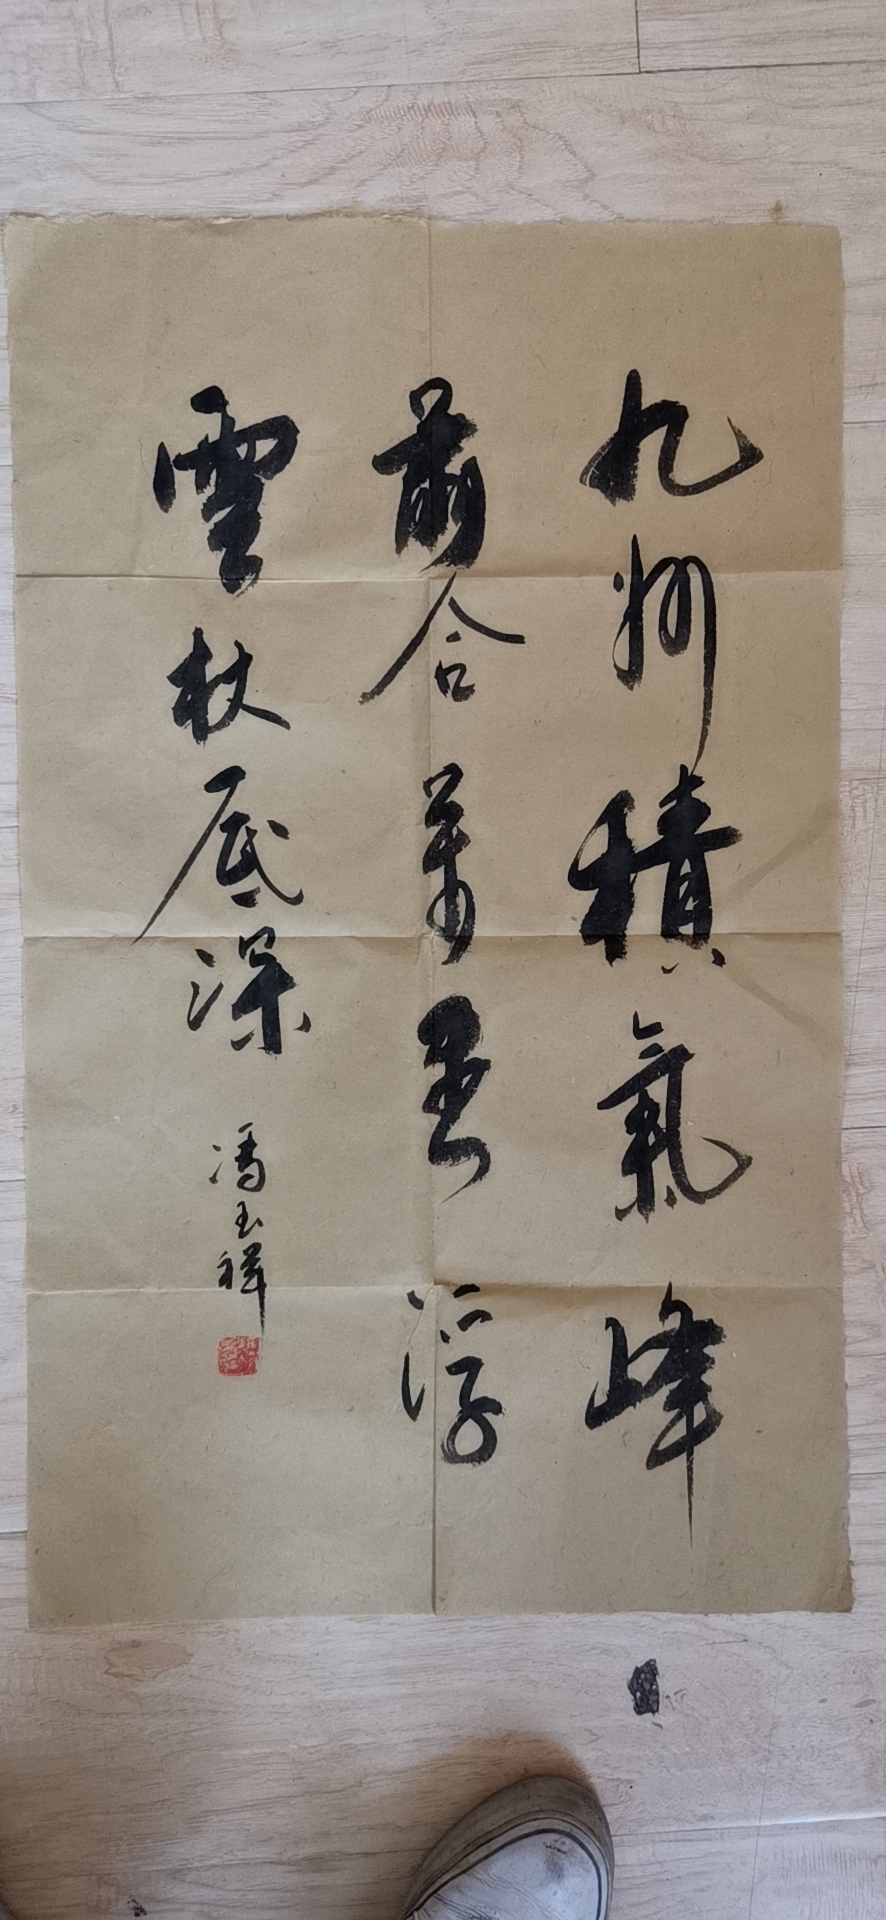 九州積氣峰
前合萬里浮
雲杖底深
馮玉祥